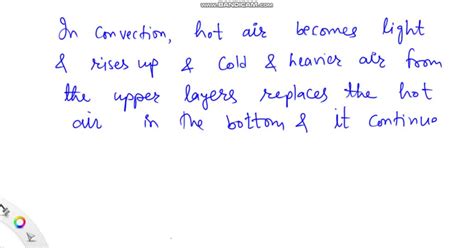 www.BANDICAM.com
In Convection, hot air becomes light
& rises up & cold & heavier air from
the upper layers replaces the hot
air in the bottom & it continue